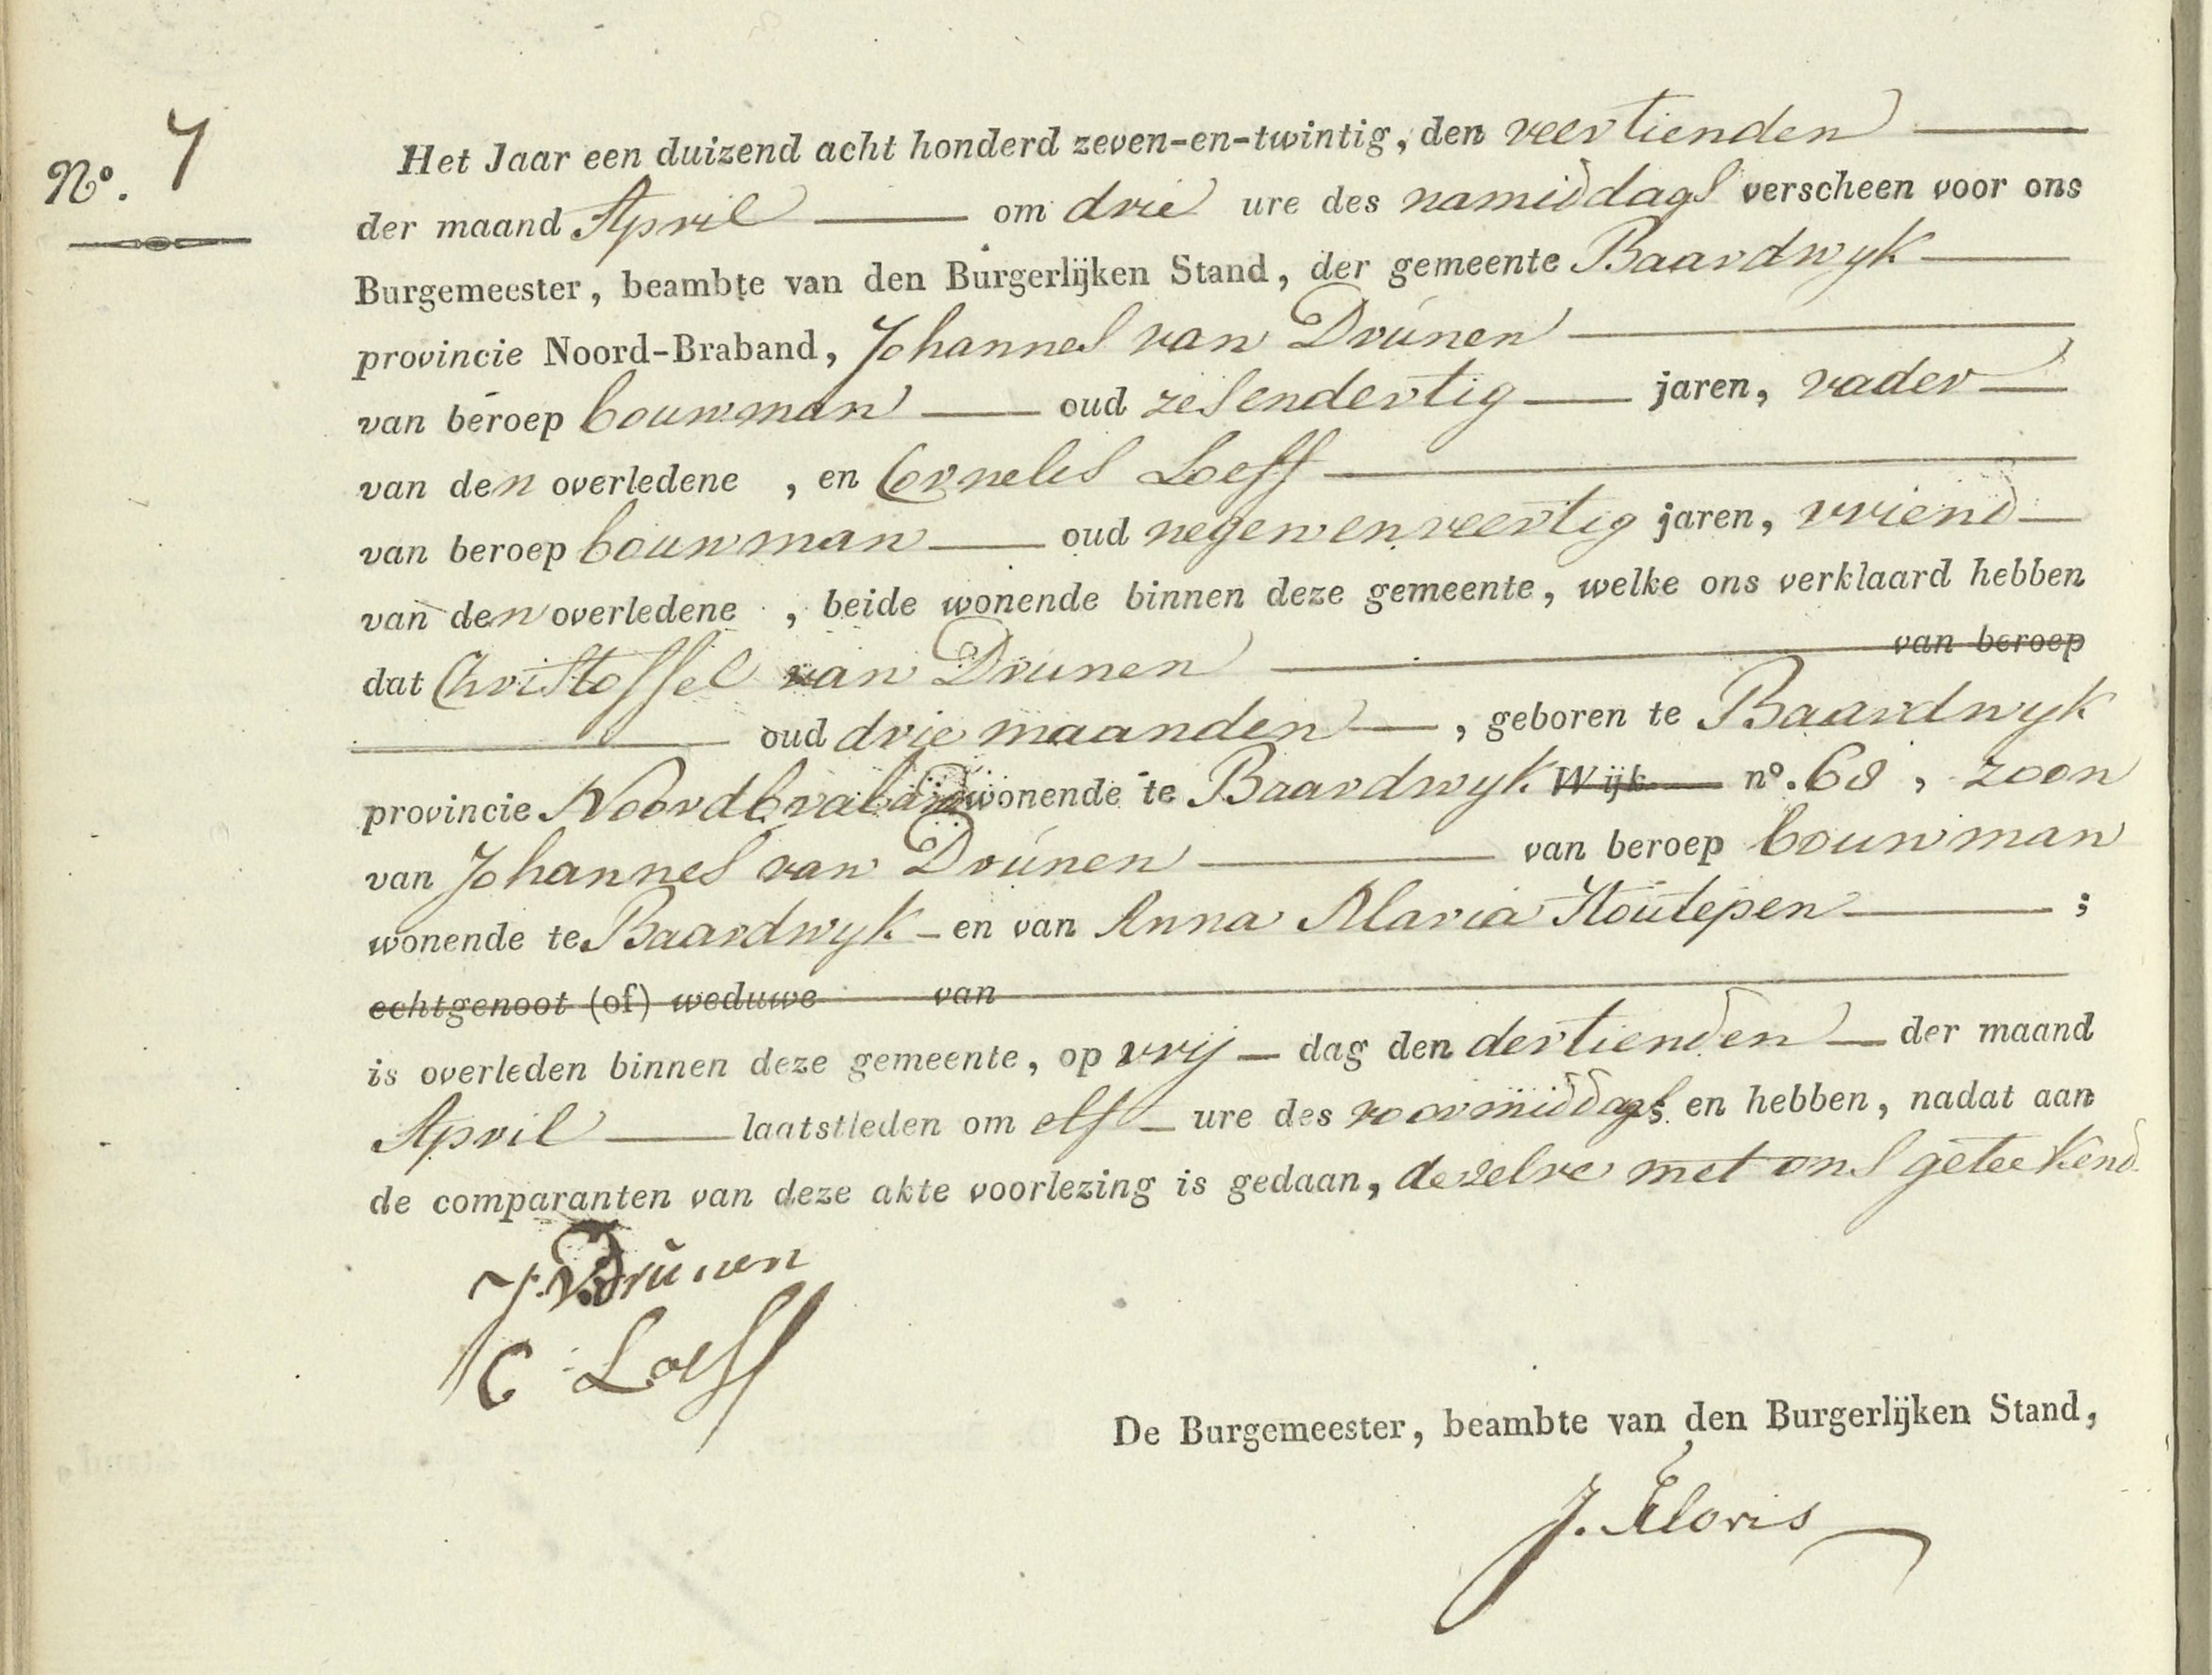 No. 7
Het Jaar een duizend acht honderd zeven-en-twintig, den veertienden
der maand April om drie ure des namiddags verscheen voor ons
Burgemeester, beambte van den Burgerlijken Stand, der gemeente Baardwyk
provincie Noord-Braband, Johannes van Drúnen
van beroep bouwman oud zesendertig jaren, vader
van den overledene , en Cornelis Loeff
van beroep bouwman oud negenenveertig jaren, vriend
van den overledene , beide wonende binnen deze gemeente, welke ons verklaard hebben
dat Christoffel van Drunen van beroep
oud drie maanden , geboren te Baardwyk
provincie Noordbraband wonende te Baardwyk Wijk no. 68 , zoon
van Johannes van Drúnen van beroep bouwman
wonende te Baardwyk en van Anna Maria Houtepen ;
echtgenoot (of) weduwe van
is overleden binnen deze gemeente, op vrij dag den dertienden der maand
April laatstleden om elf ure des voormiddags en hebben, nadat aan
de comparanten van deze akte voorlezing is gedaan, dezelve met ons geteekend
J. V. Drúnen
C Loeff
De Burgemeester, beambte van den Burgerlijken Stand,
J. Floris